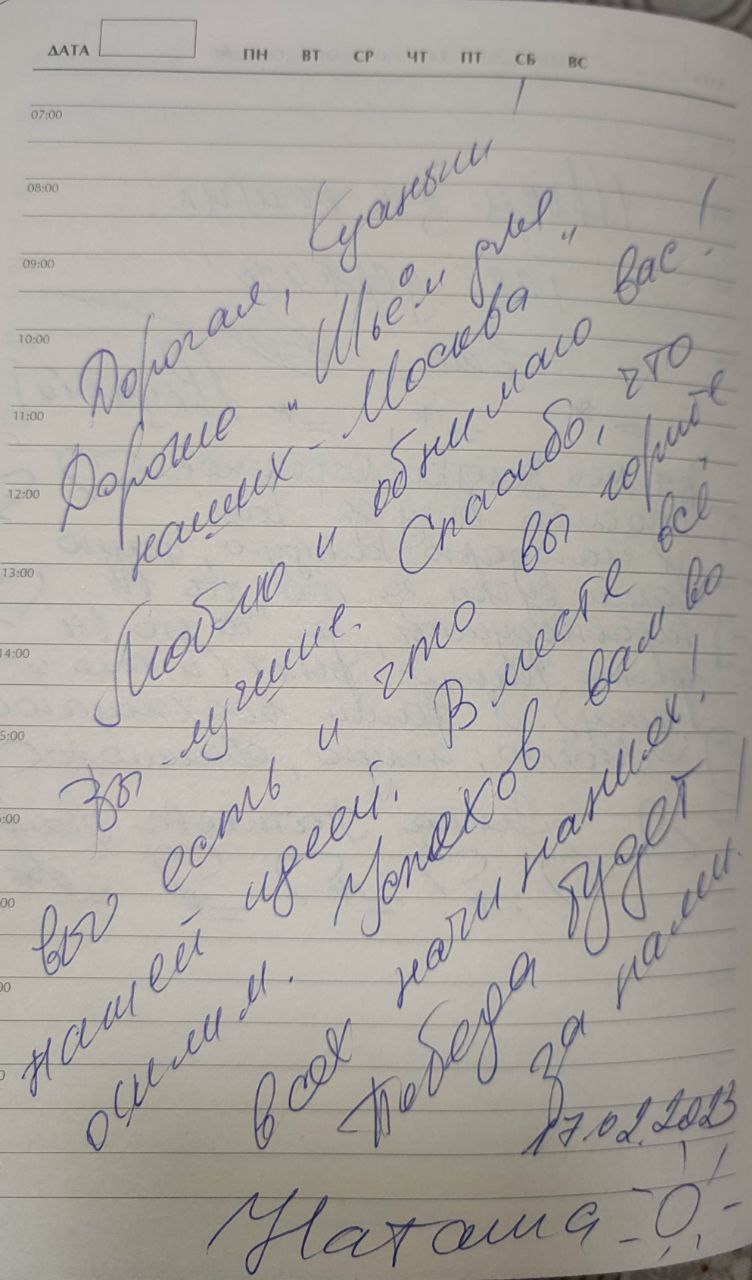 ДАТА ПН ВТ СР ЧТ ПТ СБ ВС
07:00
08:00
09:00
10:00
11:00
12:00
13:00
14:00
Дорогая, Куаныш
Дорогие "Шьём для
наших - Москва"
Люблю и обнимаю вас!
Вы лучшие. Спасибо, что
вы есть и что вы горите
нашей идеей. Вместе всё
осилим. Успехов вам во
всех начинаниях!
Победа будет
за нами.
17.02.2023
Наташа